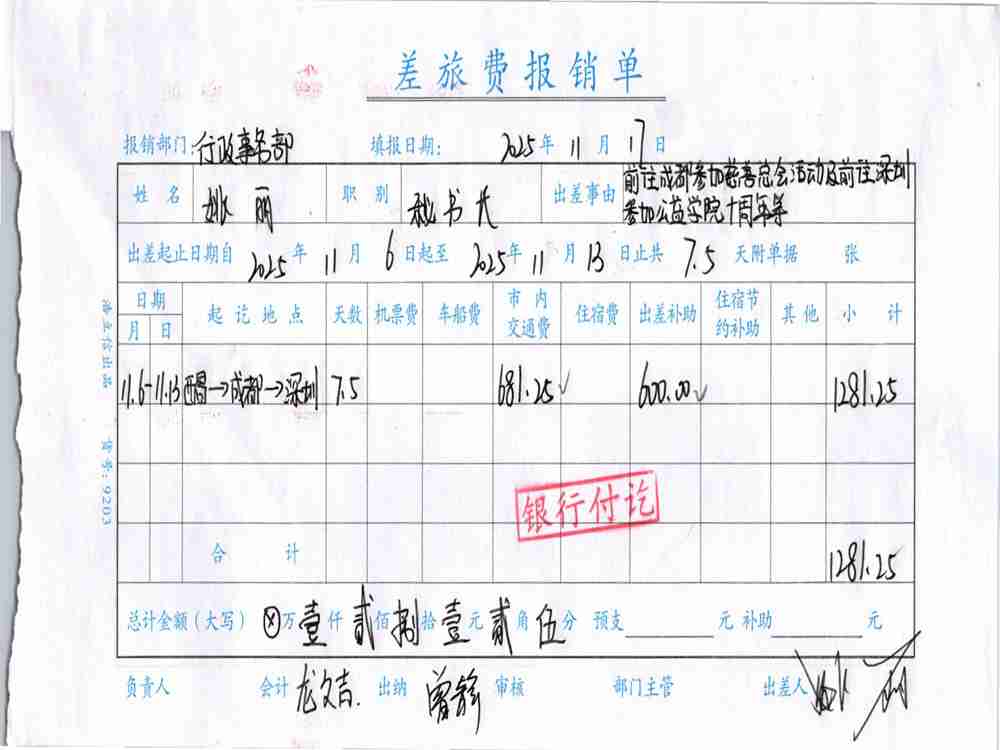 差旅费报销单
报销部门:行政事务部 填报日期: 2025年 11月 17日
姓名 姚丽 职别 秘书长 出差事由 前往成都参加慈善总会活动及前往深圳
参加公益学院十周年等
出差起止日期自 2025年 11月 6日起至 2025年 11月 13日止共 7.5 天附单据 张
日期 起讫地点 天数 机票费 车船费 市内交通费 住宿费 出差补助 住宿节约补助 其他 小计
月 日
11.6-11.13 西昌→成都→深圳 7.5 681.25 600.00 1281.25
银行付讫
合计 1281.25
总计金额(大写) ⊗万壹仟贰佰捌拾壹元贰角伍分 预支 元 补助 元
负责人 会计 龙文吉 出纳 审核 部门主管 出差人 姚丽
货号:9203